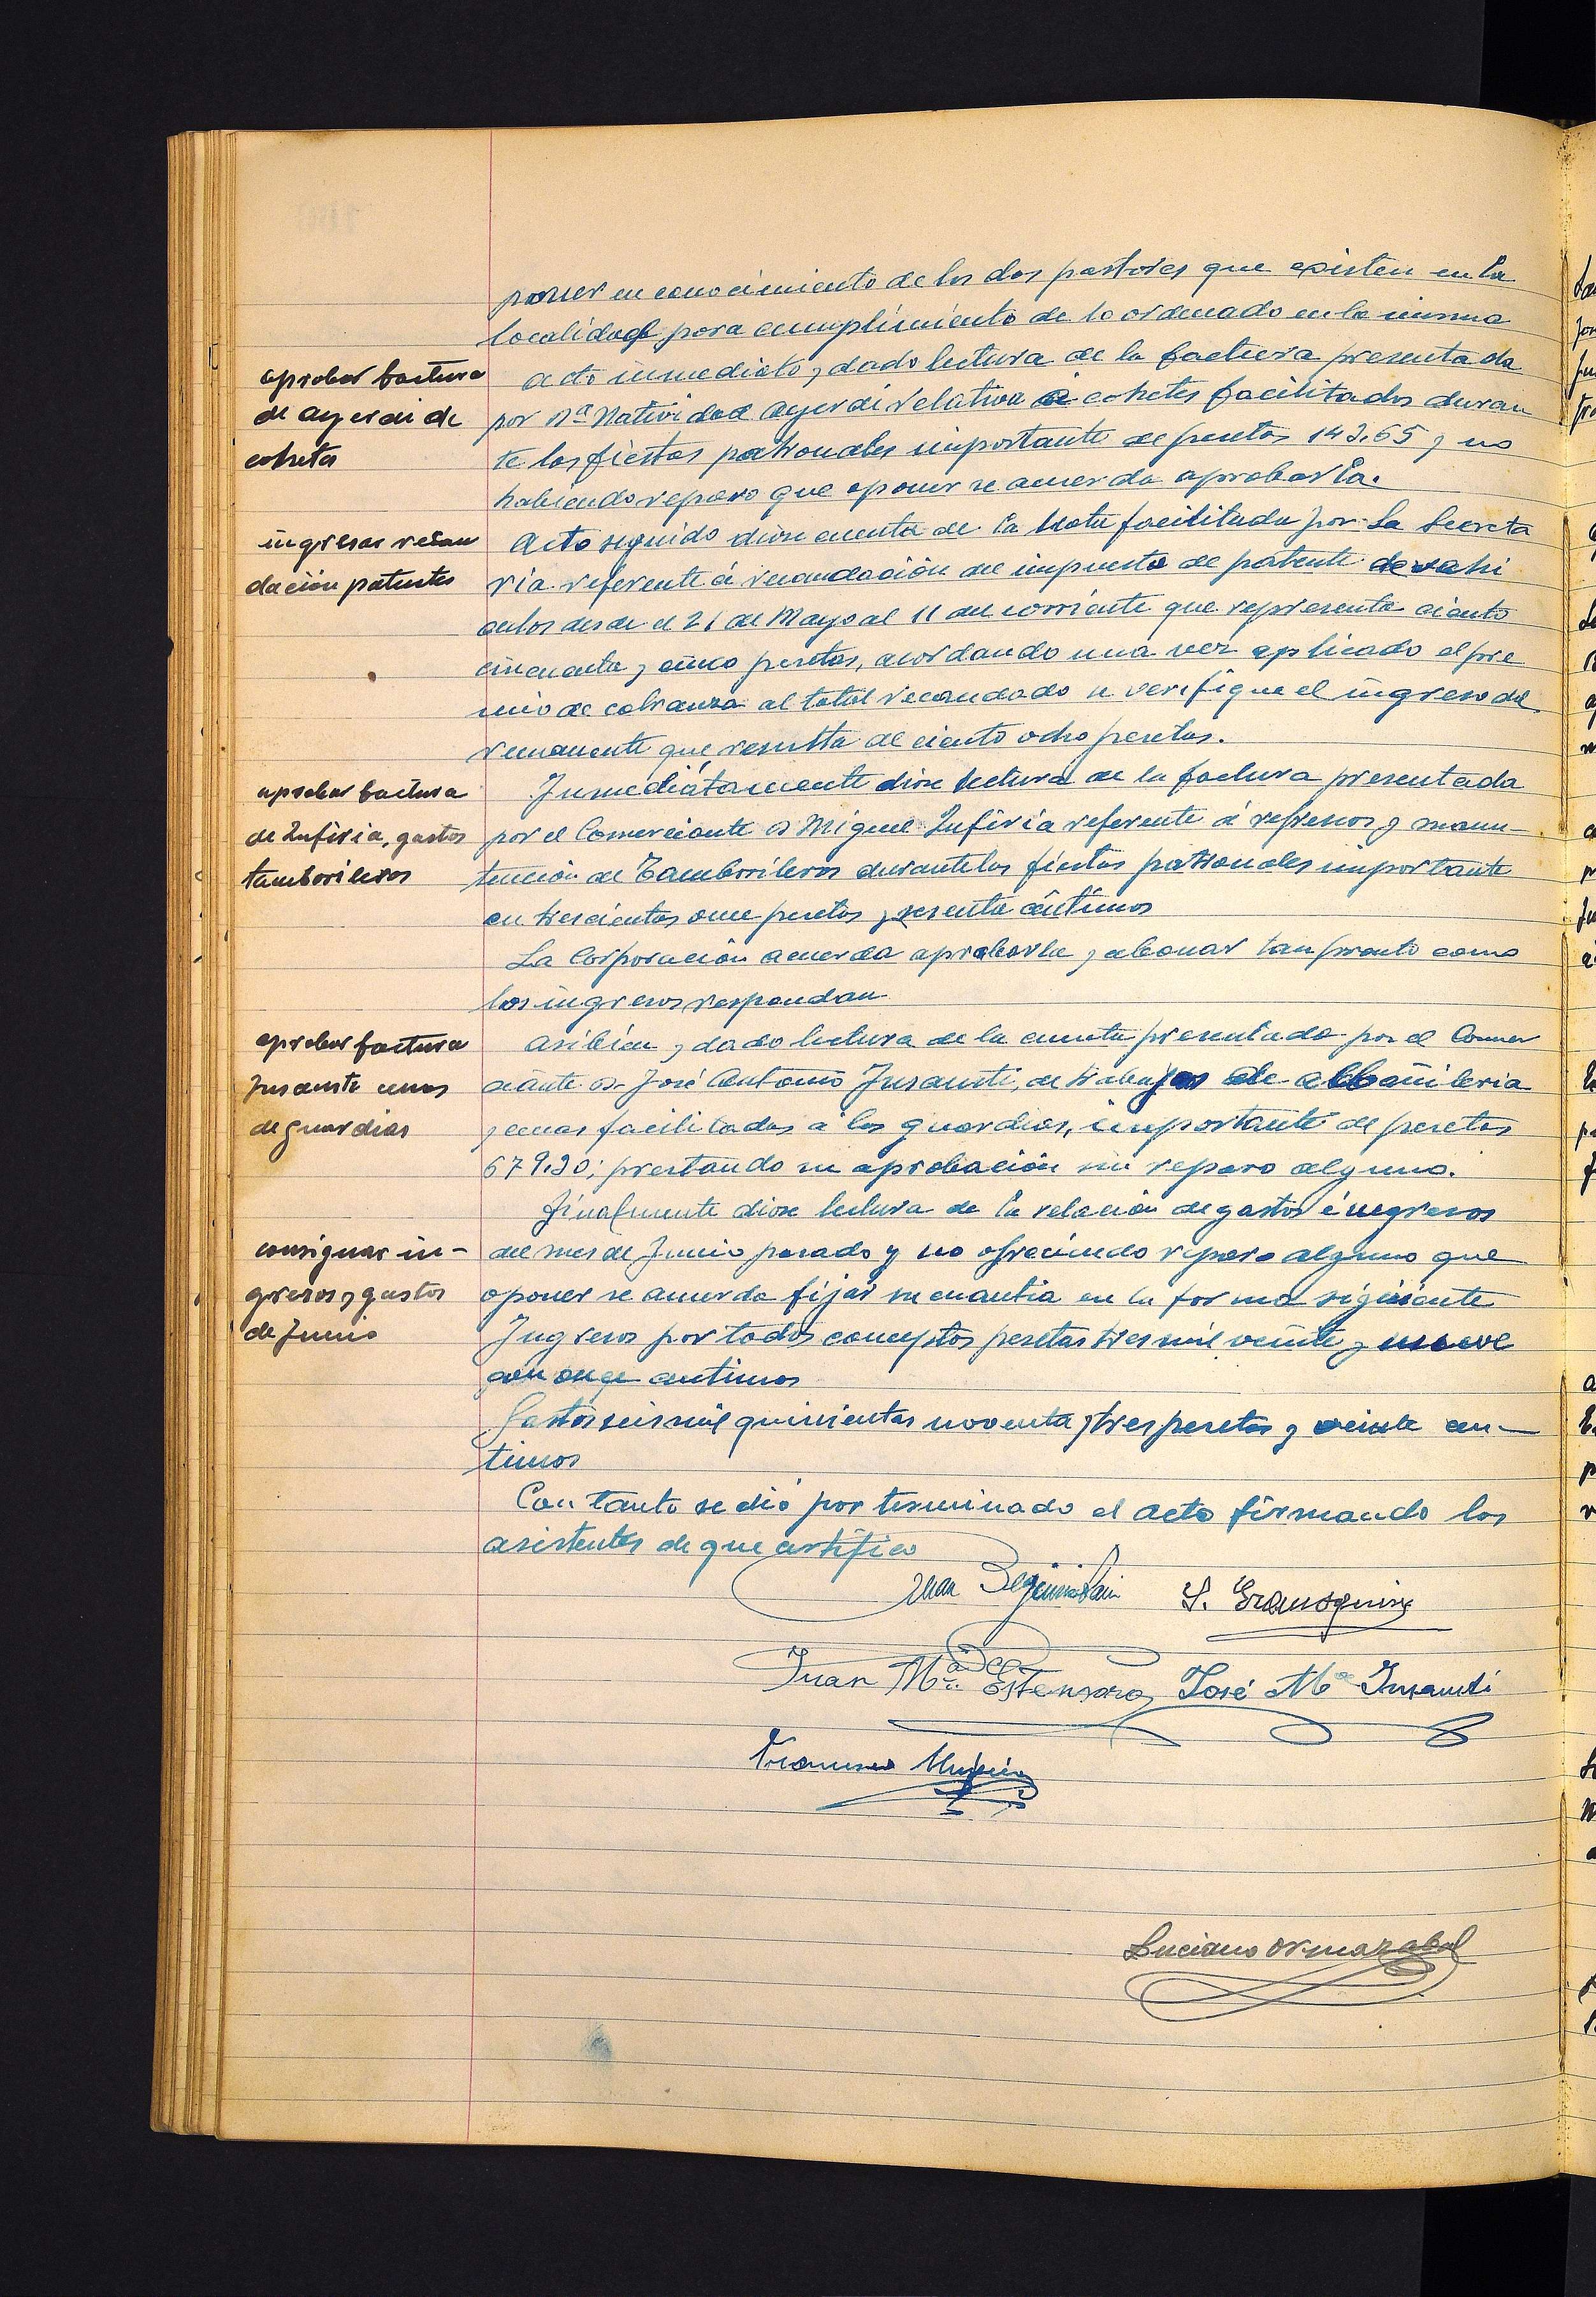 poner en conocimiento de los dos pastores que existen en la
localidad para cumplimiento de lo ordenado en la misma
aprobar factura
de ayerdi de
cohetes
acto inmediato, dado lectura de la factura presentada
por Dª Natividad ayerdi relativa á cohetes facilitados duran
te las fiestas patronales importante de pesetas 143,65 y no
habiendo reparo que oponer se acuerda aprobarla.
ingresar recau
dación patentes
Acto seguido diose cuenta de la Nota facilitada por la Secreta
ria referente á recaudación del impuesto de patente de vehi
culos desde el 21 de Mayo al 11 del corriente que representa ciento
cincuenta y cinco pesetas, acordando una vez aplicado el pre
mio de cobranza al total recaudado se verifique el ingreso del
remanente que resulta de ciento ocho pesetas.
aprobar factura
de Zufiria, gastos
tamborileros
Inmediatamente diose lectura de la factura presentada
por el Comerciante D Miguel Zufiria referente á refrescos y manu-
tención de Tamborileros durante las fiestas patronales importante
en trescientas once pesetas y sesenta céntimos
La Corporación acuerda aprobarla y abonar tan pronto como
los ingresos respondan
aprobar factura
Insausti camas
de guardias
asibien, dado lectura de la cuenta presentada por el Comer
ciante D. José Antonio Insausti, de trabajos de albañileria
y camas facilitadas a los guardias, importante de pesetas
679,30; prestando su aprobación sin reparo alguno.
Finalmente diose lectura de la relación de gastos é ingresos
consignar in-
gresos y gastos
de Junio
del mes de Junio pasado y no ofreciendo reparo alguno que
oponer se acuerda fijar su cuantia en la forma siguiente
Ingresos por todos conceptos pesetas tres mil veinte y nueve
con once centimos
Gastos seis mil quinientas noventa y tres pesetas y veinte cen-
timos
Con tanto se dió por terminado el acto firmando los
asistentes de que certifico
Juan Beguiristain S. Eramsguin
Juan Mª Estensoro José Mª Insausti
Francisco Mugica
Luciano Ormazabal